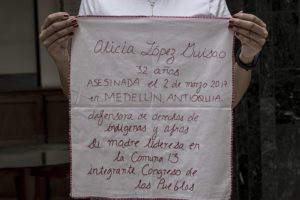 Alicia López Guisao
32 años
ASESINADA el 2 de marzo 2017
en MEDELLÍN, ANTIOQUIA.
defensora de derechos de
indígenas y afros
Su madre lideresa en
la Comuna 13
integrante Congreso de
los Pueblos